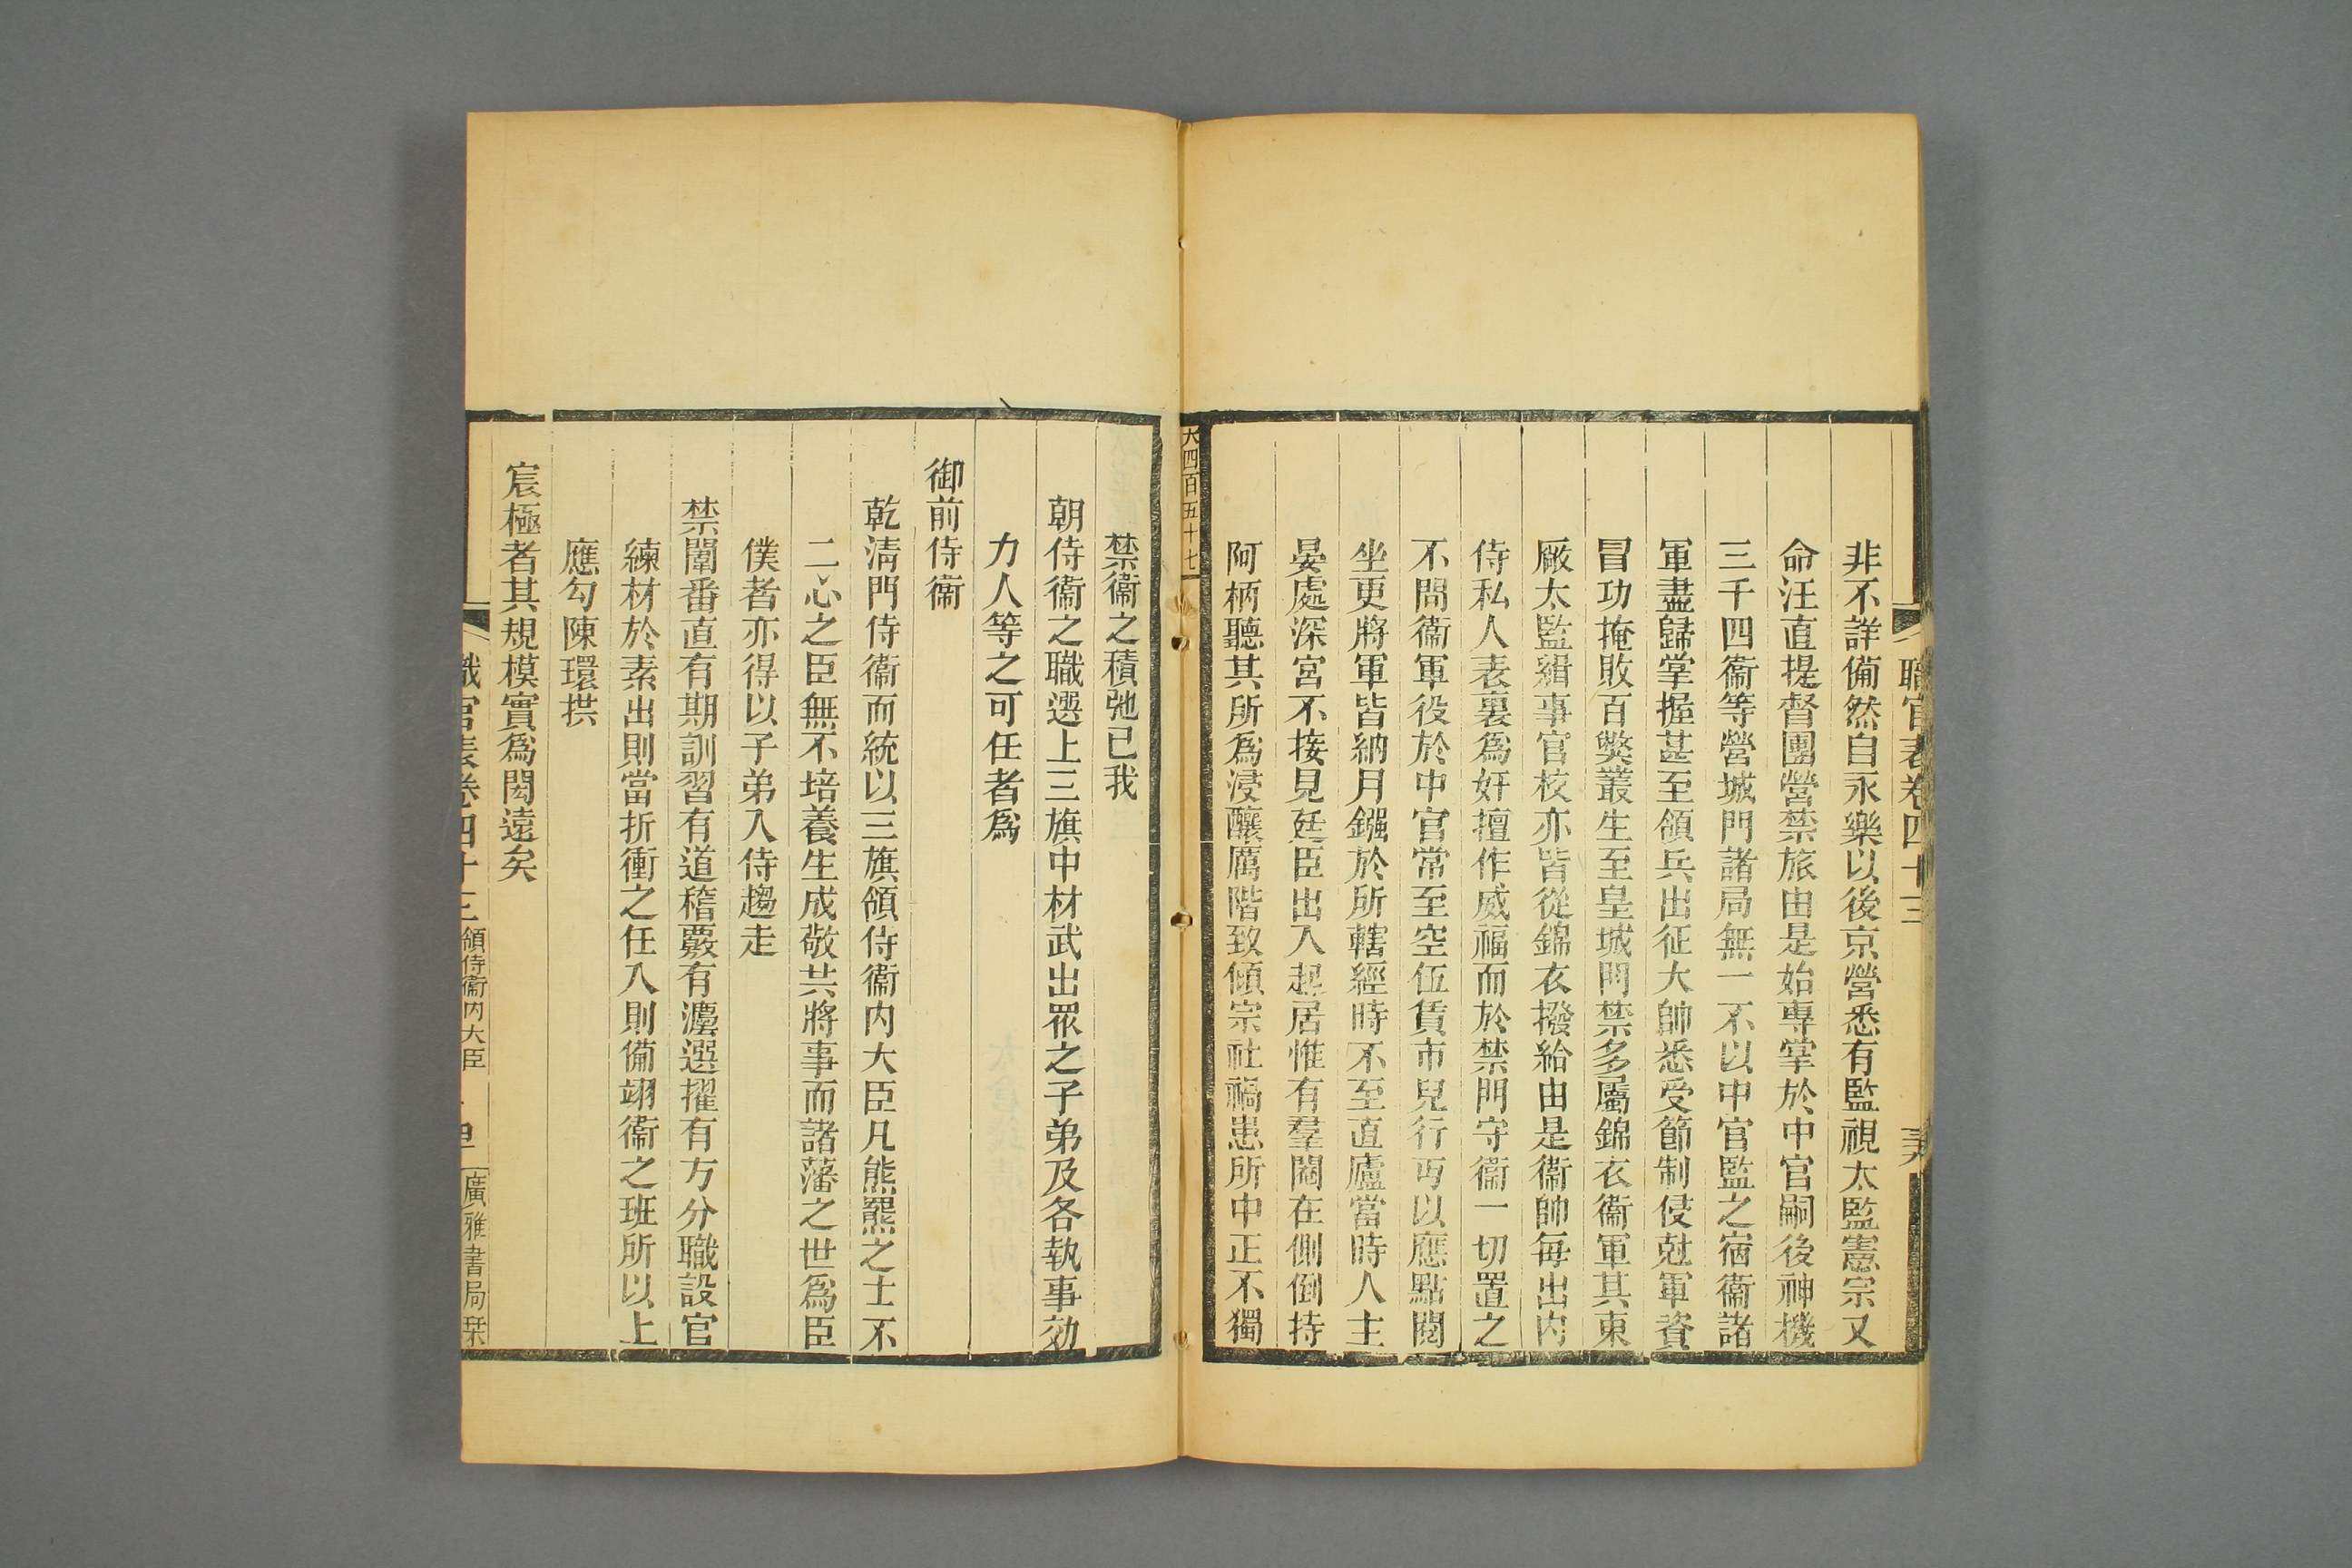 職官表卷四十三
非不詳備然自永樂以後京營悉有監視太監憲宗又
命汪直提督團營禁旅由是始專掌於中官嗣後神機
三千四衞等營城門諸局無一不以中官監之宿衞諸
軍盡歸掌握甚至領兵出征大帥悉受節制侵尅軍資
冒功掩敗百獘叢生至皇城門禁多屬錦衣衞軍其東
厰太監緝事官校亦皆從錦衣撥給由是衞帥每出內
侍私人表裏爲奸擅作威福而於禁門守衞一切置之
不問衞軍役於中官常至空伍賃市兒行丐以應點閱
坐更將軍皆納月鏹於所轄經時不至直廬當時人主
晏處深宮不接見廷臣出入起居惟有羣閹在側倒持
阿柄聽其所爲浸釀厲階致傾宗社禍患所中正不獨
大四百五十七
禁衞之積弛已我
朝侍衞之職選上三旗中材武出眾之子弟及各執事効
力人等之可任者爲
御前侍衞
乾淸門侍衞而統以三旗領侍衞內大臣凡熊羆之士不
二心之臣無不培養生成敬共將事而諸藩之世爲臣
僕者亦得以子弟入侍趨走
禁闈番直有期訓習有道稽覈有灋選擢有方分職設官
練材於素出則當折衝之任入則備翊衞之班所以上
應勾陳環拱
宸極者其規模實爲閎遠矣
職官表卷四十三 領侍衞內大臣
廣雅書局栞